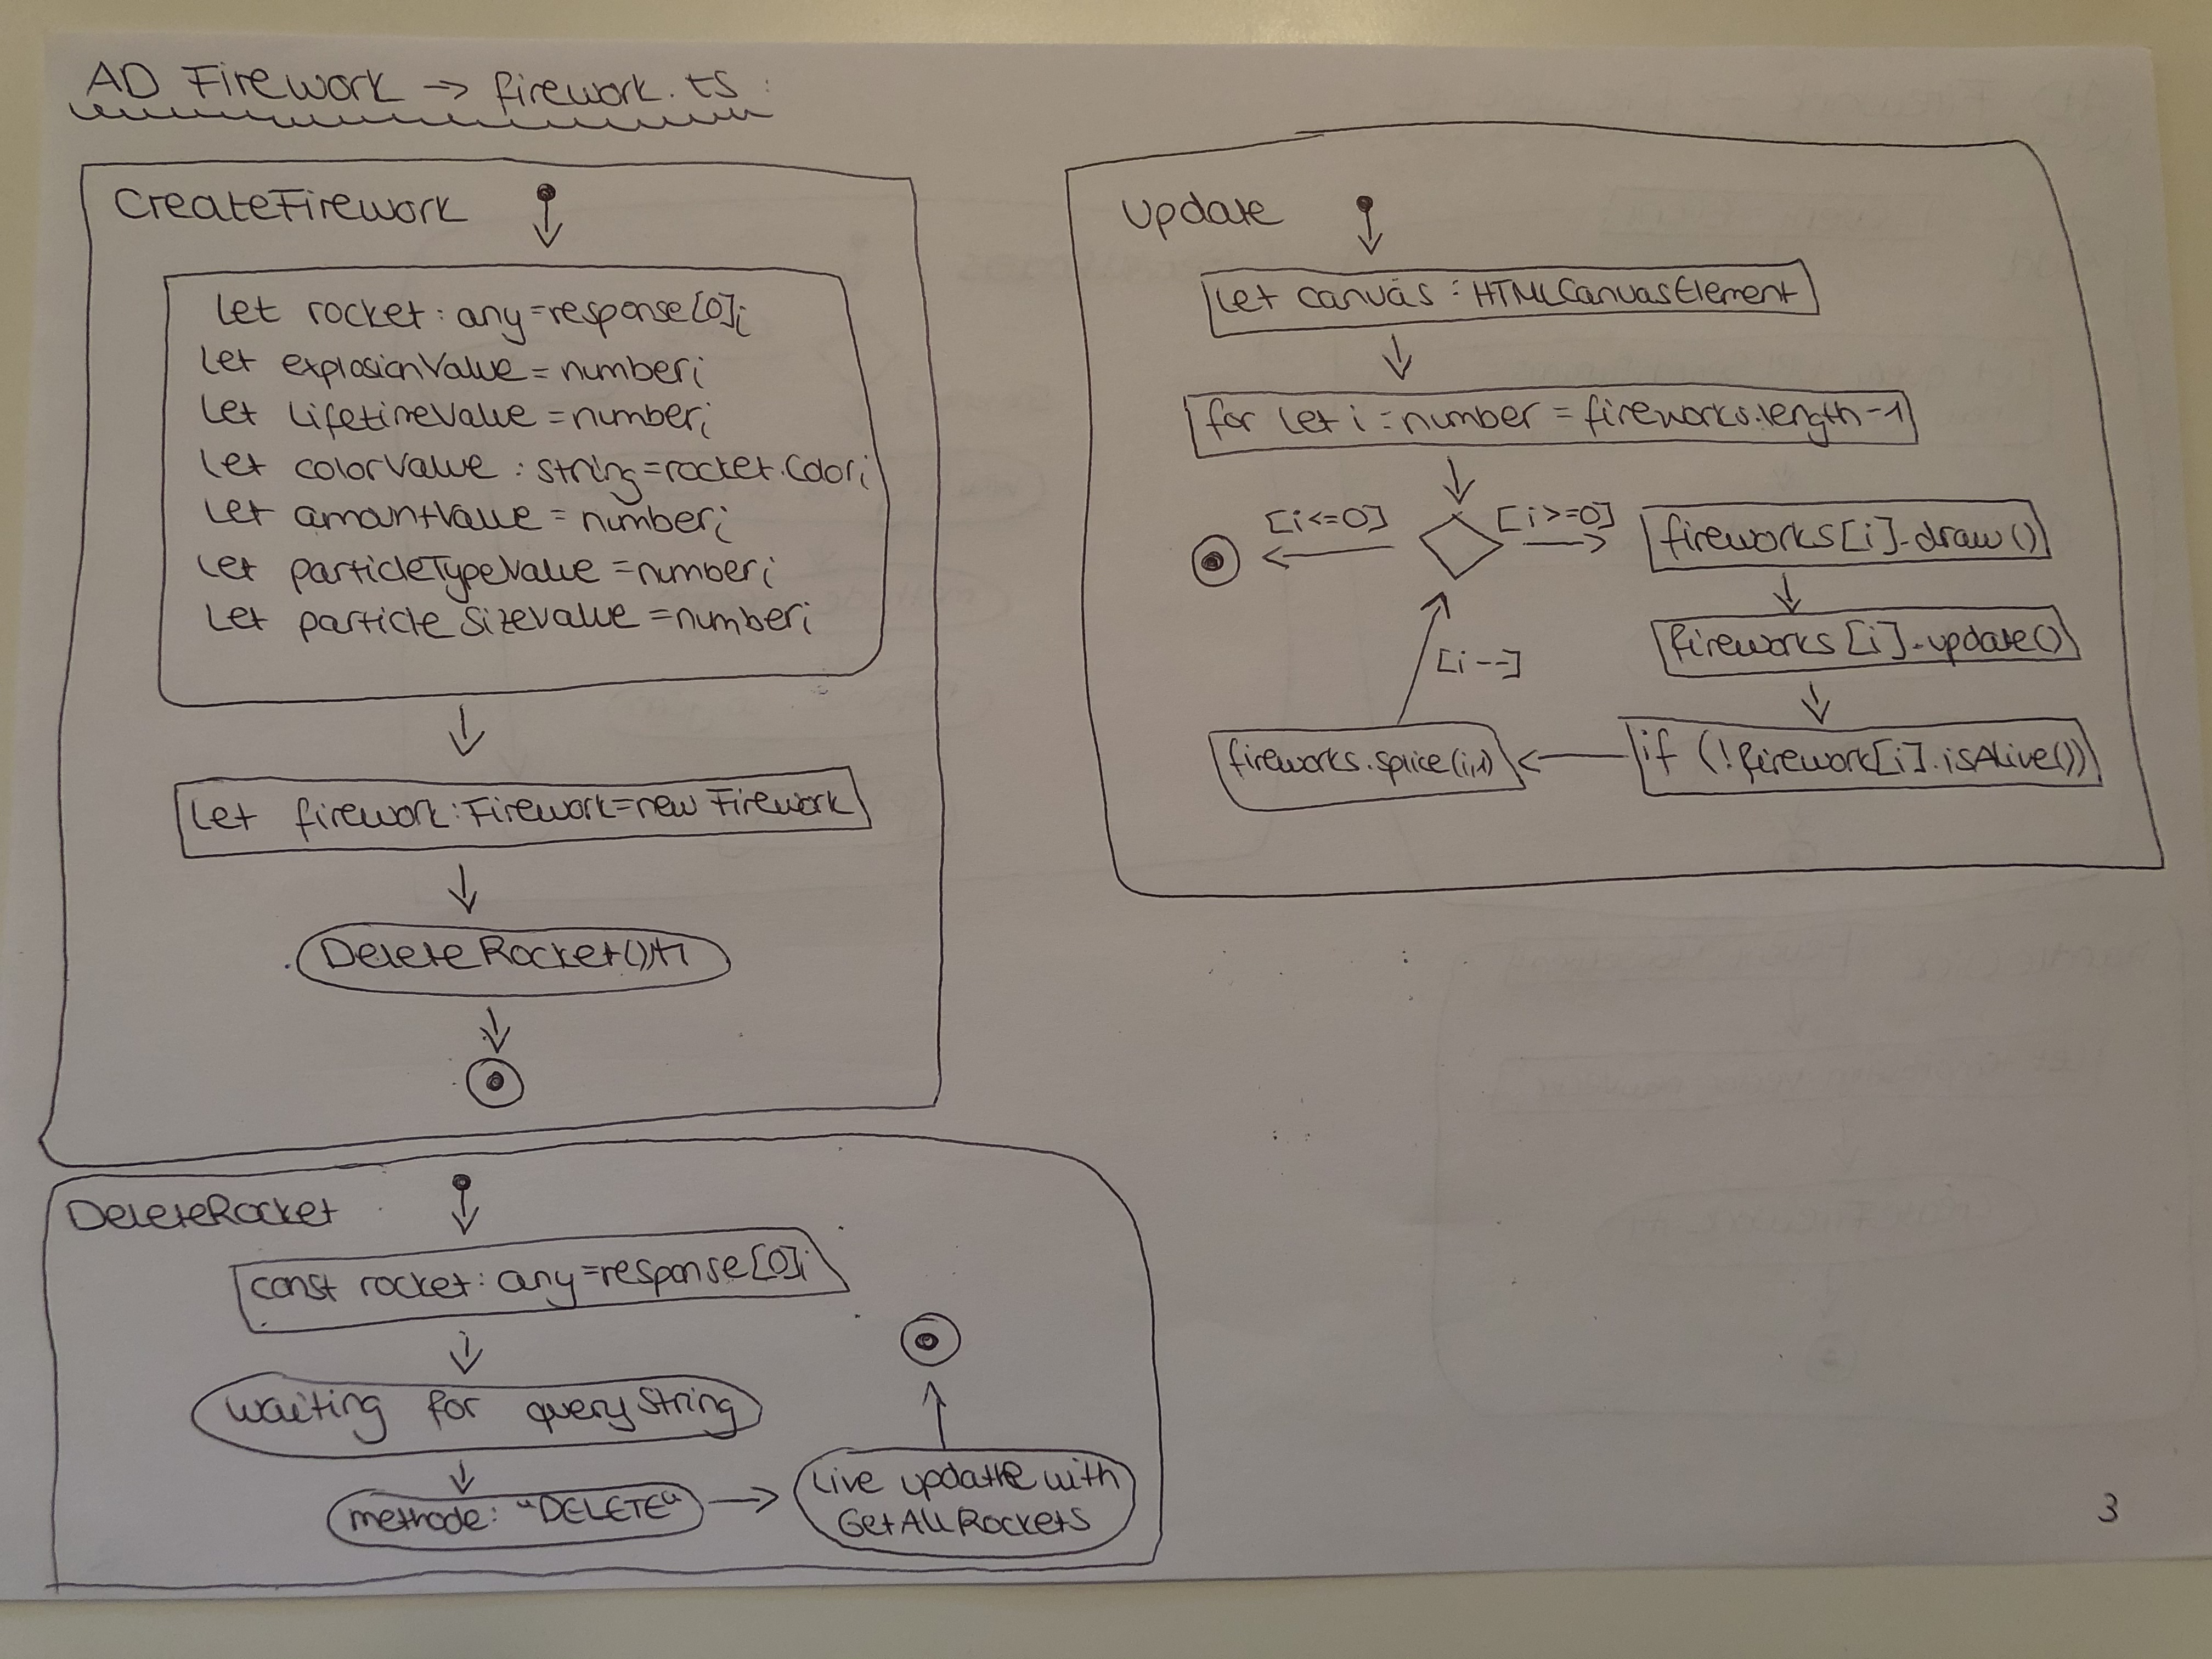 AD Firework -> firework.ts:
CreateFirework
let rocket: any=response[0];
let explosionValue = number;
let lifetimeValue = number;
let colorValue: string=rocket.Color;
let amountValue = number;
let particleTypeValue = number;
let particleSizeValue = number;
let firework: Firework=new Firework
DeleteRocket()
DeleteRocket
const rocket: any=response[0];
waiting for query String
methode: "DELETE"
Live update with
GetAllRockets
update
let canvas: HTMLCanvasElement
for let i: number = fireworks.length-1
[i<=0]
[i>=0]
fireworks[i].draw()
fireworks[i].update()
if (!firework[i].isAlive())
fireworks.splice(i,1)
[i--]
3